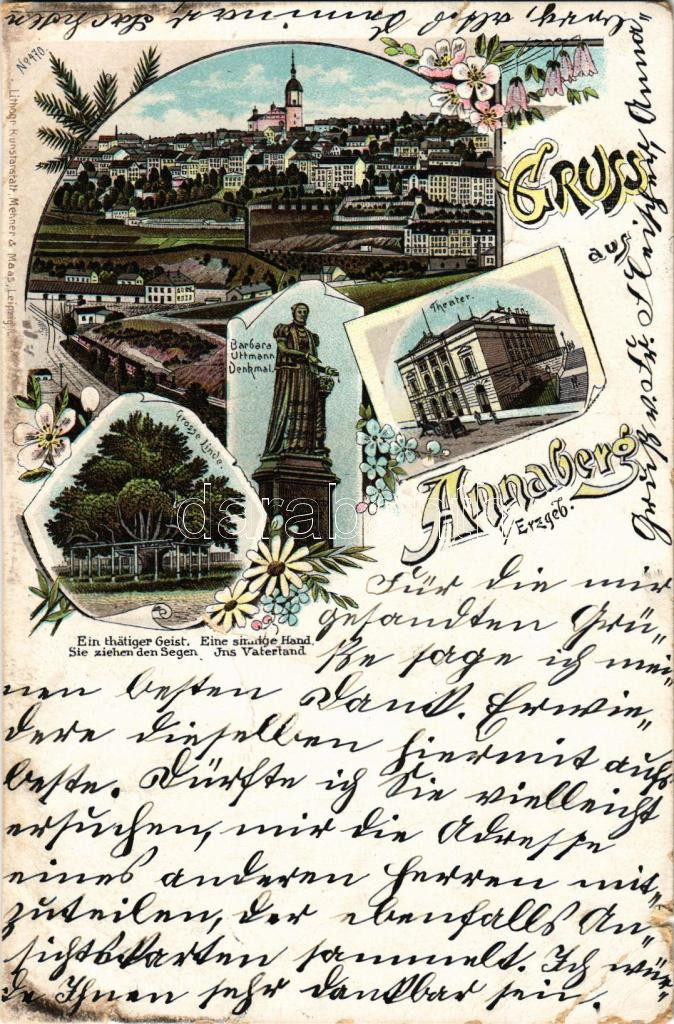 No 470.
Lithogr. Kunstanstalt, Mehner & Maas, Leipzig
GRUSS
aus
Annaberg
i/Erzgeb.
Theater.
Barbara
Uttmann
Denkmal.
Grosse Linde.
Ein thätiger Geist. Eine sinnige Hand,
Sie ziehen den Segen Ins Vaterland
darabanth
Für die mir
gesandten Grü-
ße sage ich mei-
nen besten Dank. Erwie-
dere dieselben hiermit aufs
beste. Dürfte ich Sie vielleicht
ersuchen, mir die Adresse
eines anderen Herren mit-
zuteilen, der ebenfalls An-
sichtskarten sammelt. Ich wür-
de Ihnen sehr dankbar sein.